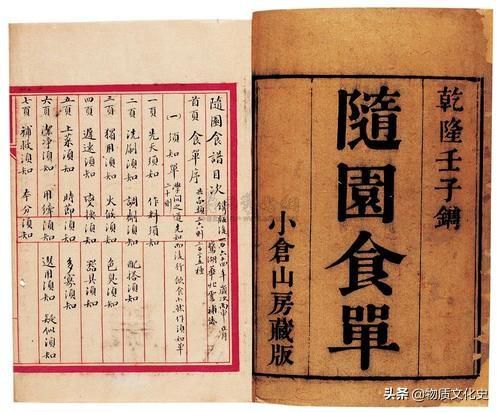 乾隆壬子鐫
隨園食單
小倉山房藏版
隨園食譜目次
首頁 食單序
(一) 須知單
一頁 先天須知 作料須知
二頁 洗刷須知 調劑須知 配搭須知
三頁 獨用須知 火候須知 色臭須知
四頁 遲速須知 變換須知 器具須知
五頁 上菜須知 時節須知 多寡須知
六頁 潔淨須知 用縴須知 選用須知 疑似須知
七頁 補救須知 本分須知
头条 @物质文化史